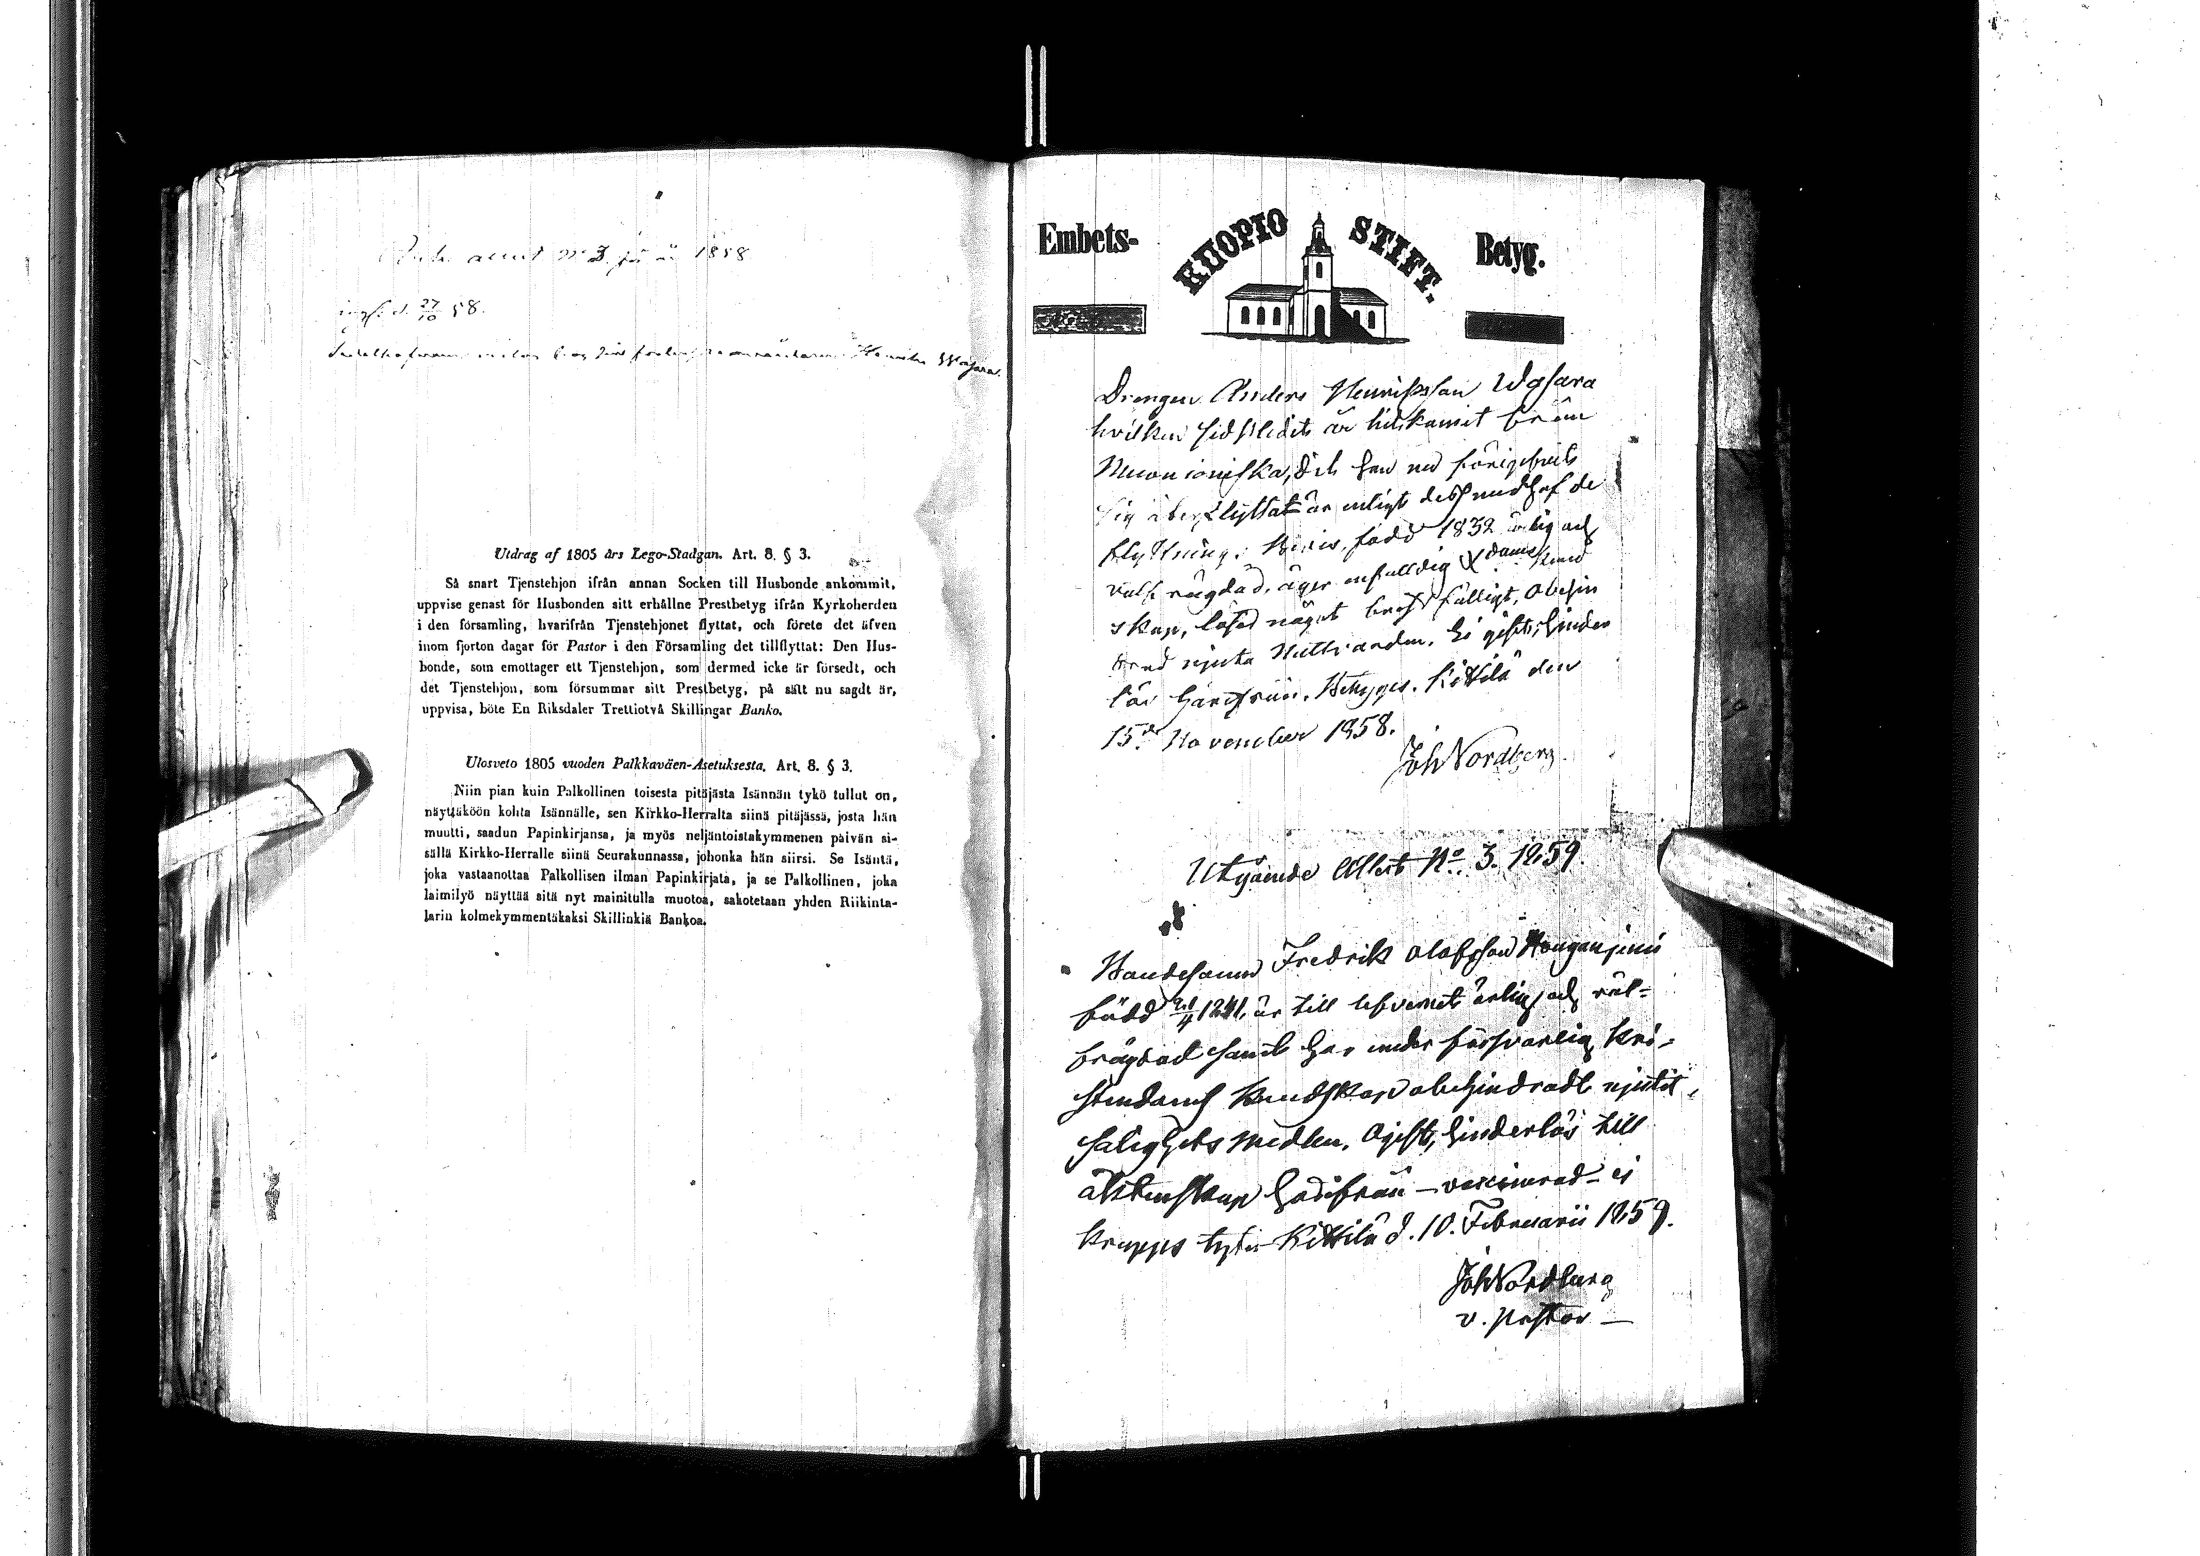 attest No 3 för år 1858
d. 27/10 58.
Henrik Wgsara.
Utdrag af 1805 års Lego-Stadgan. Art. 8. § 3.
Så snart Tjenstehjon ifrån annan Socken till Husbonde ankommit,
uppvise genast för Husbonden sitt erhållne Prestbetyg ifrån Kyrkoherden
i den församling, hvarifrån Tjenstehjonet flyttat, och förete det äfven
inom fjorton dagar för Pastor i den Församling det tillflyttat: Den Hus-
bonde, som emottager ett Tjenstehjon, som dermed icke är försedt, och
det Tjenstehjon, som försummar sitt Prestbetyg, på sätt nu sagdt är,
uppvisa, böte En Riksdaler Trettiotvå Skillingar Banko.
Ulosveto 1805 vuoden Palkkaväen-Asetuksesta. Art. 8. § 3.
Niin pian kuin Palkollinen toisesta pitäjästa Isännän tykö tullut on,
näyttäköön kohta Isännälle, sen Kirkko-Herralta siinä pitäjässä, josta hän
muutti, saadun Papinkirjansa, ja myös neljäntoistakymmenen päivän si-
sällä Kirkko-Herralle siinä Seurakunnassa, johonka hän siirsi. Se Isäntä,
joka vastaanottaa Palkollisen ilman Papinkirjata, ja se Palkollinen, joka
laimilyö näyttää sitä nyt mainitulla muotoa, sakotetaan yhden Riikinta-
larin kolmekymmentäkaksi Skillinkiä Bankoa.
Embets- KUOPIO STIFT. Betyg.
Drengen Anders Henriksson Wgsara
hvilken sidstledit år hitkommit från
Muonioniska, dit han nu
sig återflyttat är enligt dess medhafde
flyttnings betyg, född 1832 ärlig och
väl frägdad, äger enfaldig Xdoms kund
skap, läser något bristfälligt, obehin
drad njuta Nattvarden. Ej gift; hinder
lös härifrån. Betygas. Kittilä den
15de November 1858.
Joh Nordberg
Utgående Attest No 3. 1859.
Bondesonen Fredrik Olofsson
född /4 1841, är till lefvernet ärlig och väl-
frägdad samt har under försvarlig Kri-
stendoms kundskap obehindradt njutit
salighets medlen. Ogift, hinderlös till
äktenskap härifrån – vaccinerad – ej
krupps lyten Kittilä d. 10. Februarii 1859.
Joh Nordberg
v. pastor –